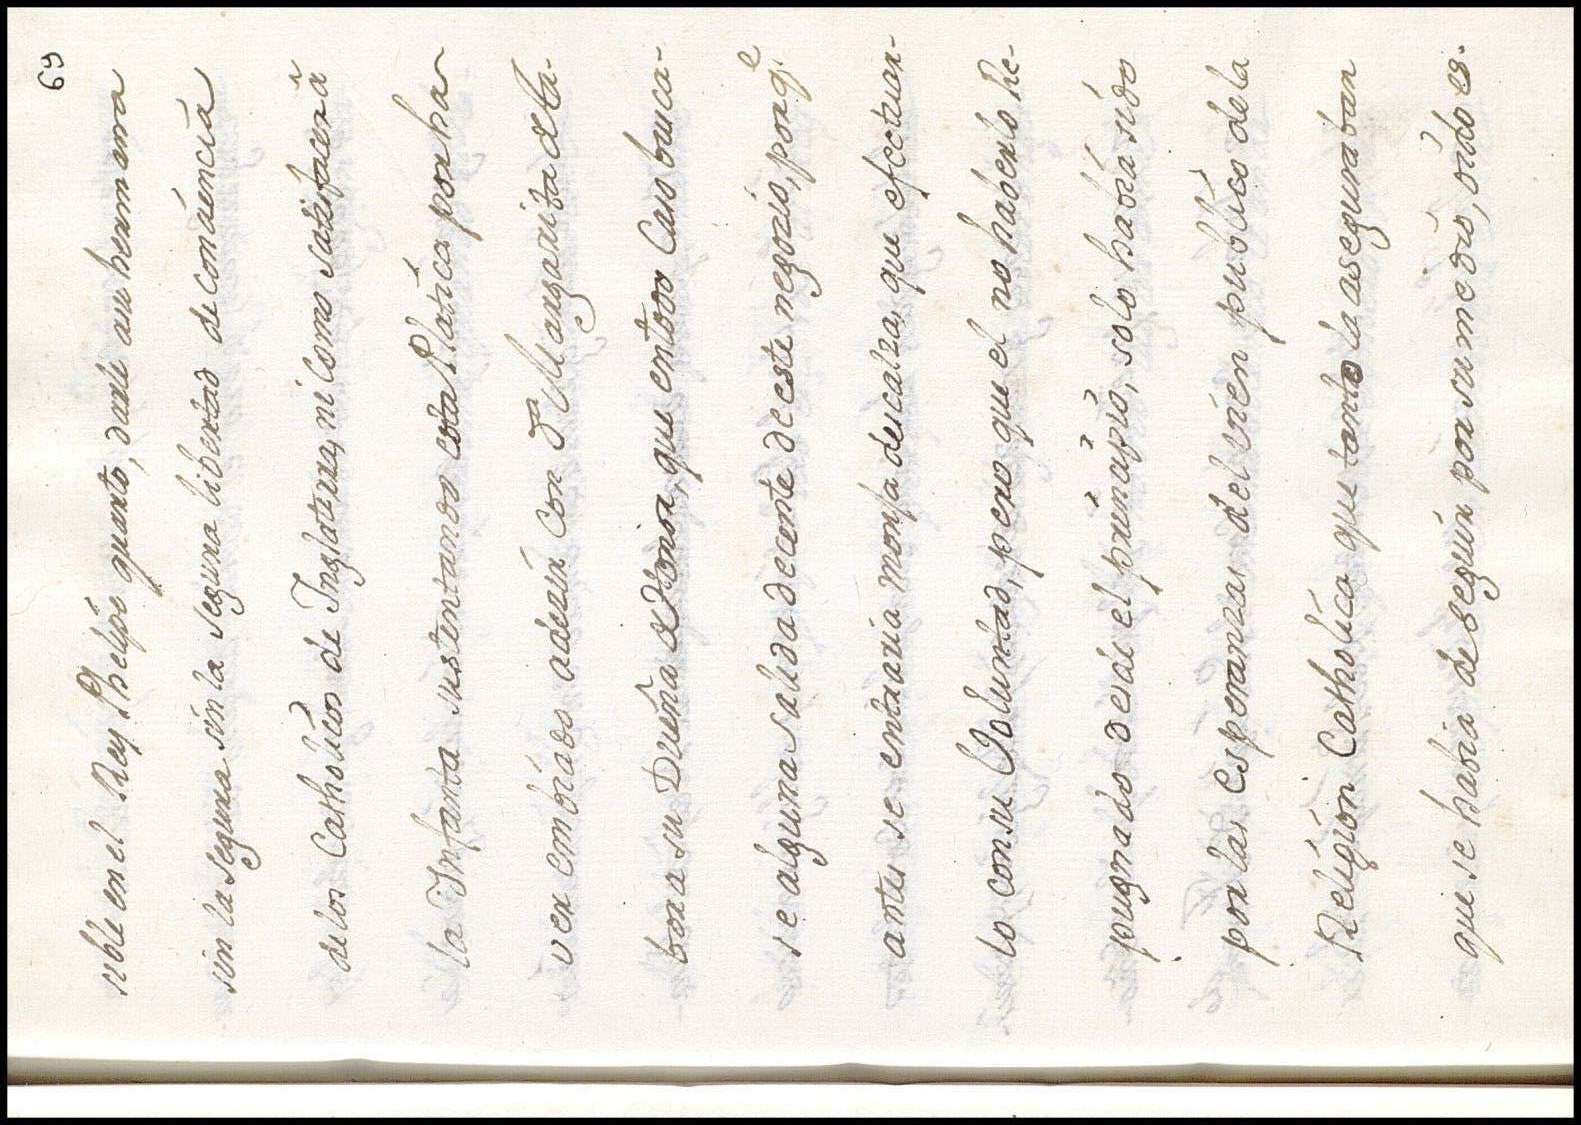 69
sible en el Rey Phelipe quarto, darle a su hermana
sin la segura sin la segura libertad de conciencia
de los Catholicos de Inglaterra, ni como satisfacerâ
la Infanta sustentamos esta Platica por ha
ver embiado a decir con Dª Margarita de Ta-
bora su Dueña de Honor, que en todo Caso busca-
se alguna salida decente de este negozio, porqᵉ.
antes se entraria monja descalza, que efectuar-
lo con su Voluntad, pero que el no haberlo re-
pugnado desde el principio, solo habia sido
por las esperanzas del vien publico de la
Religion Catholica que tanto la aseguraban
que se habia de seguir por su medio, oido es.